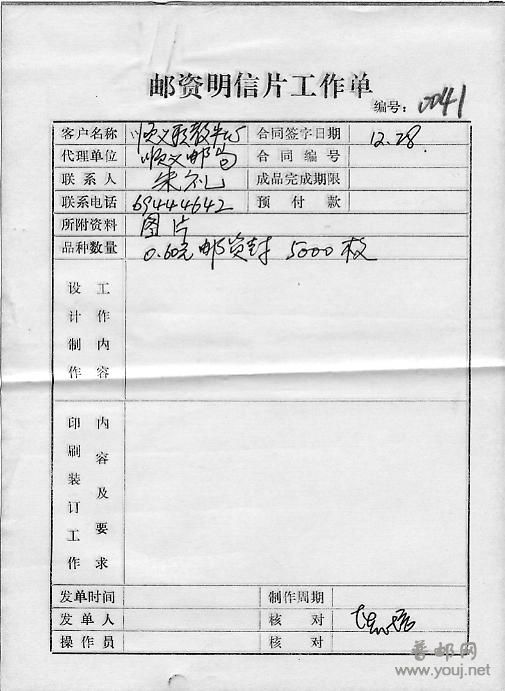 邮资明信片工作单
编号: 0041
客户名称 顺义职教中心 合同签字日期 12.28
代理单位 顺义邮局 合同编号
联系人 朱礼 成品完成期限
联系电话 69444642 预付款
所附资料 图片
品种数量 0.60元邮资封 5000枚
设计制作 工作内容
印刷装订工作 内容及要求
发单时间 制作周期
发单人 核对
操作员 核对
荟邮网
www.youj.net